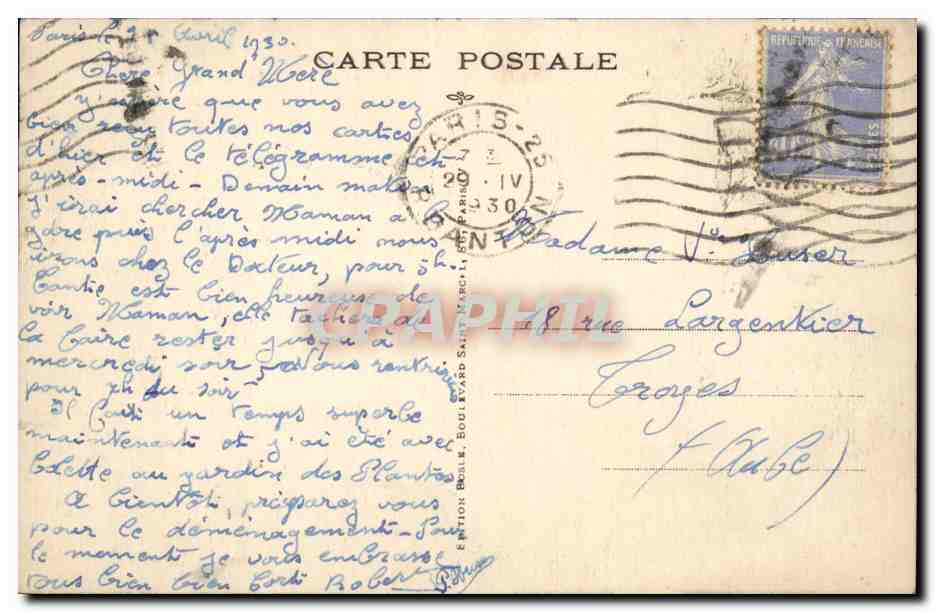 Paris le Avril 1930.
Chere Grand' Mere
J'espère que vous avez
bien reçu toutes nos cartes
d'hier et le télégramme
après-midi - Demain matin
j'irai chercher Maman à la
gare puis l'après midi nous
irons chez le Docteur, pour 5h.
Tantie est bien heureuse de
voir Maman, elle tachera de
la faire rester jusqu'à
mercredi soir, Nous rentrerons
pour 7h du soir
Il fait un temps superbe
maintenant et j'ai été avec
Colette au jardin des Plantes
A bientôt, préparez vous
pour le déménagement - Pour
le moment je vous embrasse
tous bien bien fort Robert
CARTE POSTALE
REPUBLIQUE FRANÇAISE
POSTES
PARIS - 25
20 . IV
30
DANTON
EDITION NOBLE, BOULEVARD SAINT-MARCEL, PARIS
CPAPHIL
Madame Vve
18 rue Largentier
Troyes
(Aube)